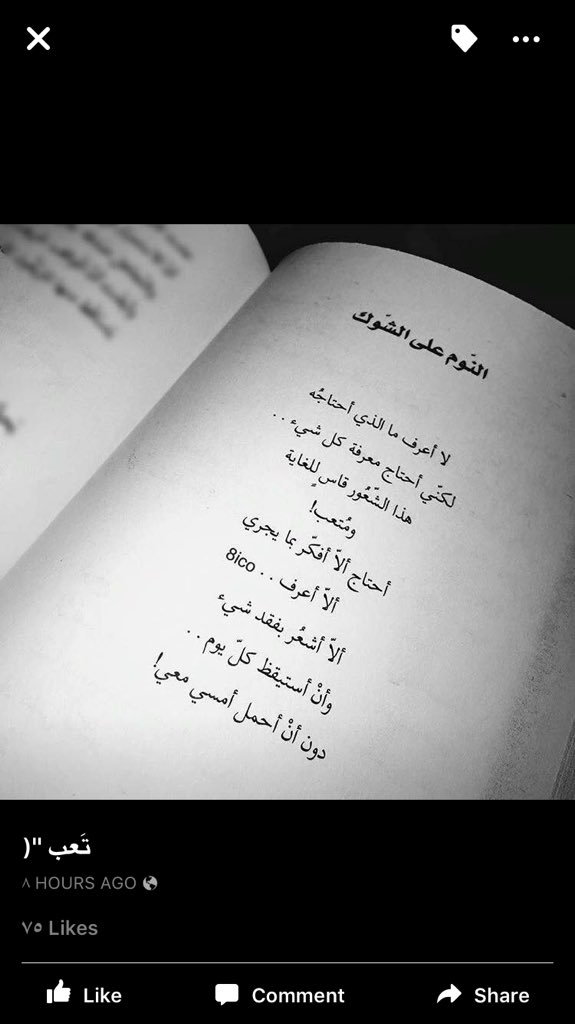 النَوم على الشَوك
لا أعرف ما الذي أحتاجُه
لكنّني أحتاج معرفة كل شيء ..
هذا الشّعُور قاسٍ للغاية
ومُتعب!
أحتاج ألاّ أفكّر بما يجري
ألاّ أعرف .. 8ico
ألاّ أشعُر بفقد شيء
وأنْ أستيقظ كلّ يوم ..
دون أنْ أحمل أمسي معي!
تَعب "(
٨ HOURS AGO
٧٥ Likes
Like
Comment
Share